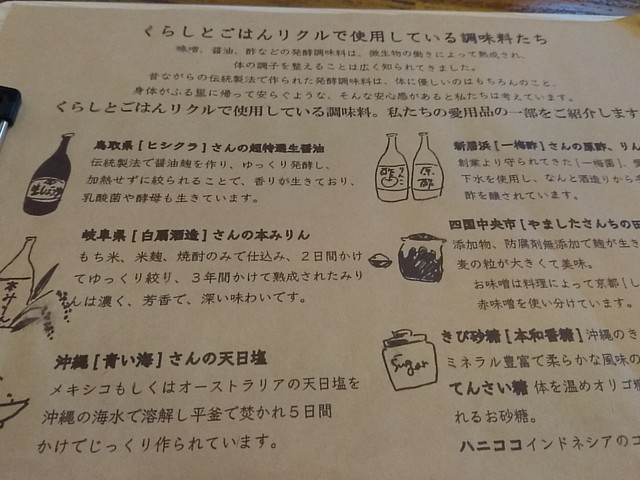 くらしとごはんリクルで使用している調味料たち
味噌、醤油、酢などの発酵調味料は、微生物の働きによって熟成され、
体の調子を整えることは広く知られてきました。
昔ながらの伝統製法で作られた発酵調味料は、体に優しいのはもちろんのこと、
身体がふる里に帰って安らぐような、そんな安心感があると私たちは考えています。
くらしとごはんリクルで使用している調味料。私たちの愛用品の一部をご紹介します
鳥取県[ヒシクラ]さんの超特選生醤油
伝統製法で醤油麹を作り、ゆっくり発酵し、
加熱せずに絞られることで、香りが生きており、
乳酸菌や酵母も生きています。
生しょうゆ
岐阜県[白扇酒造]さんの本みりん
もち米、米麹、焼酎のみで仕込み、2日間かけ
てゆっくり絞り、3年間かけて熟成されたみり
んは濃く、芳香で、深い味わいです。
本みりん
沖縄[青い海]さんの天日塩
メキシコもしくはオーストラリアの天日塩を
沖縄の海水で溶解し平釜で焚かれ5日間
かけてじっくり作られています。
新居浜[一梅酢]さんの原酢、りん
創業より守られてきた「一梅菌」、
下水を使用し、なんと酒造りから
酢を醸されています。
四国中央市[やましたさんちの田
添加物、防腐剤無添加で麹が生き
麦の粒が大きくて美味。
お味噌は料理によって京都[し
赤味噌を使い分けています。
きび砂糖[本和香糖]沖縄のき
ミネラル豊富で柔らかな風味の
てんさい糖 体を温めオリゴ糖
れるお砂糖。
Sugar
ハニココインドネシアのコ